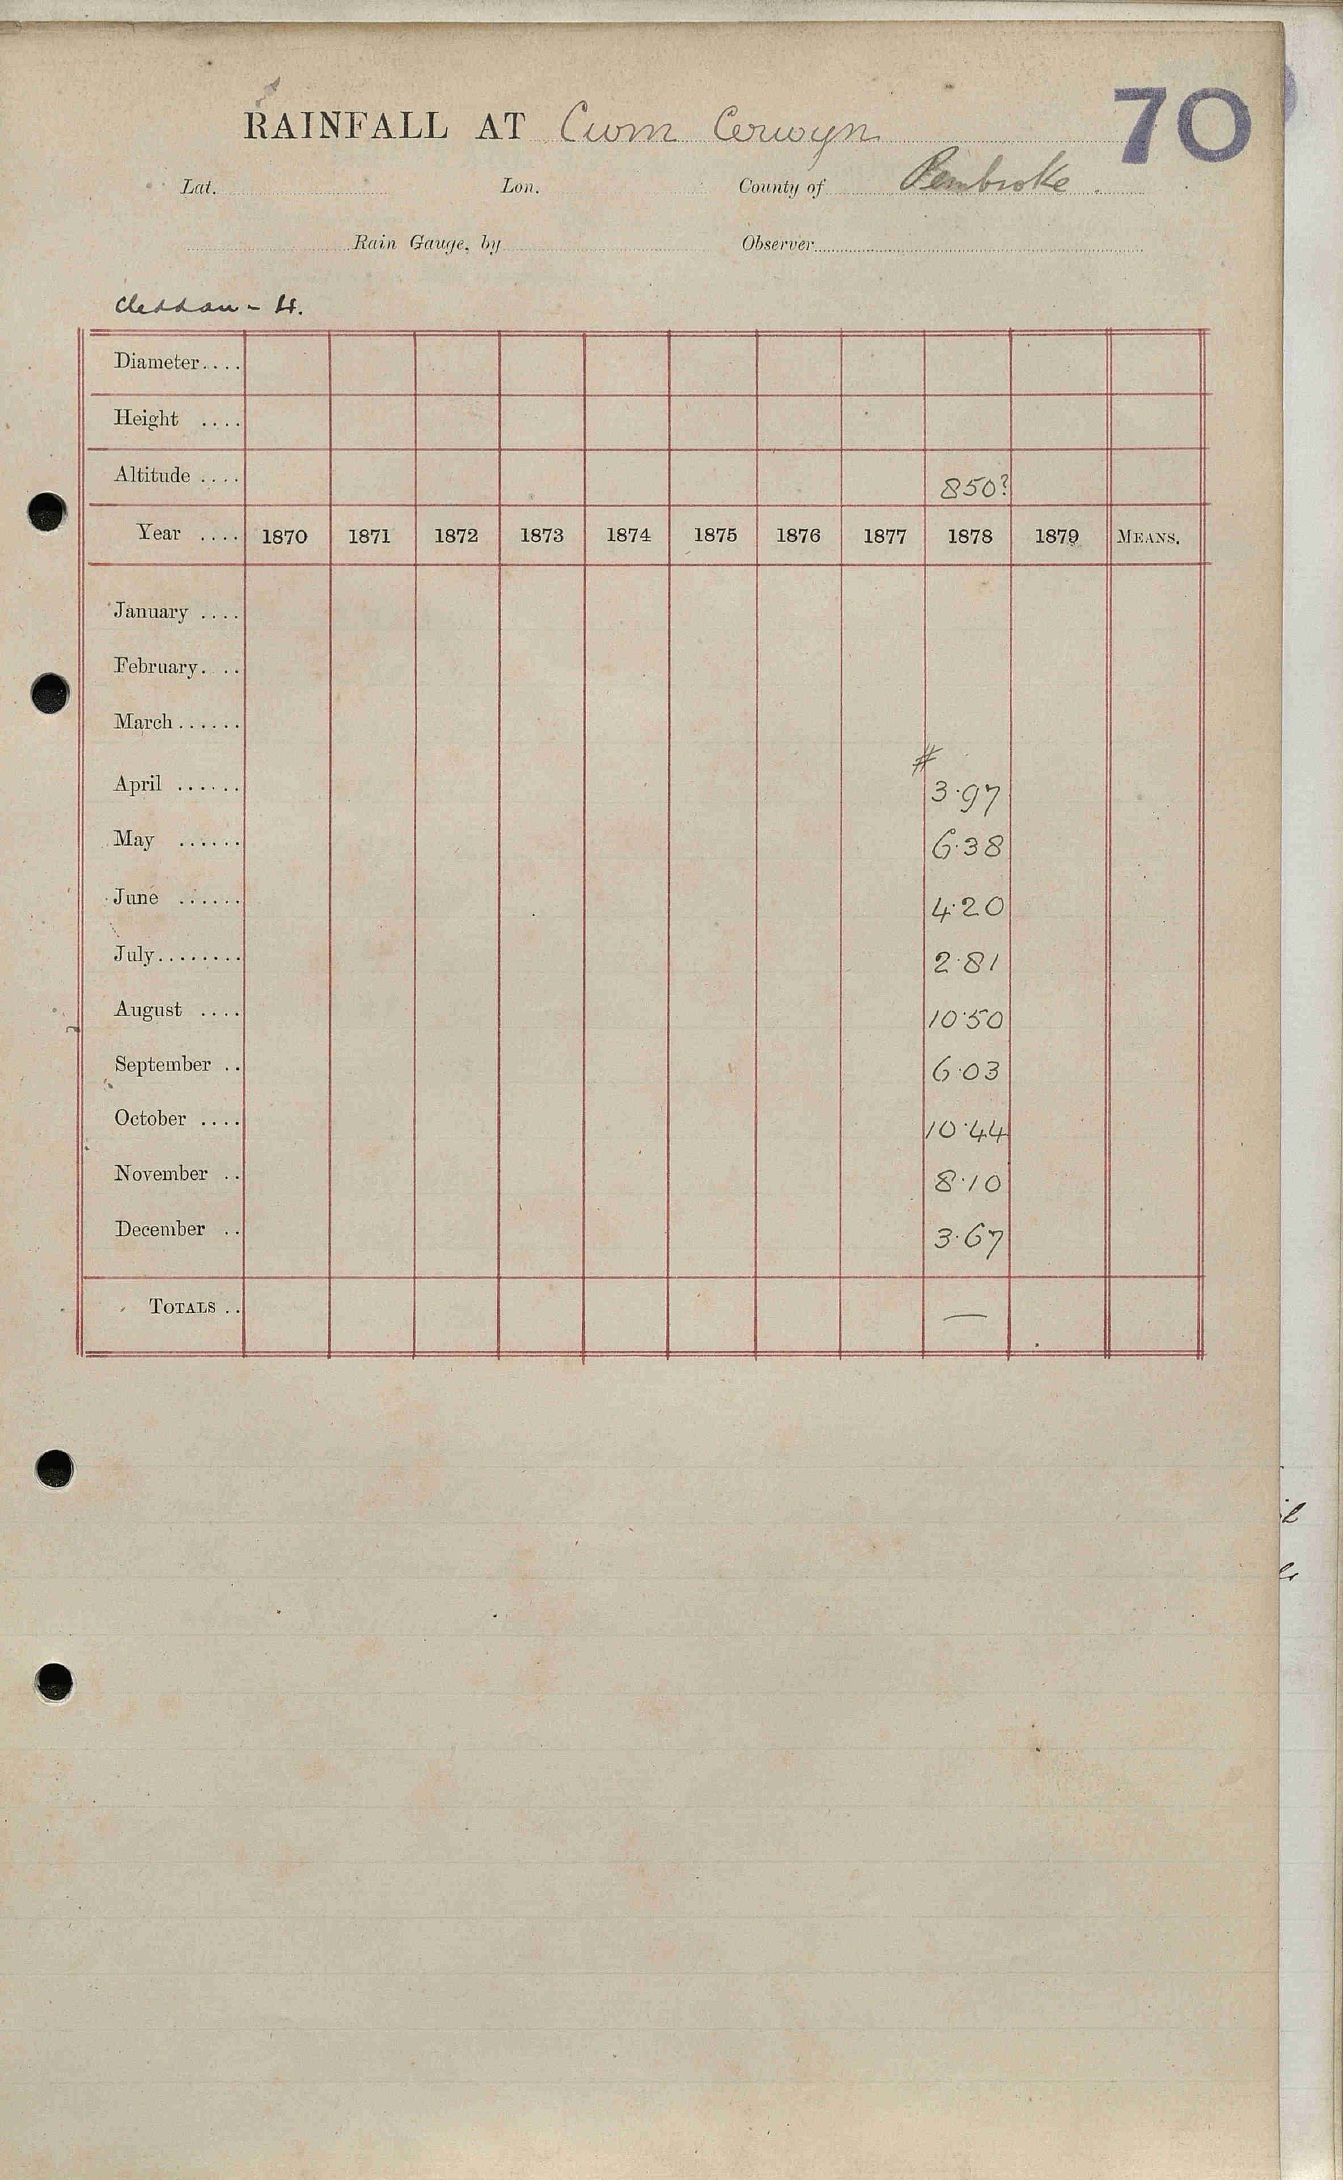 70
RAINFALL AT Cwm Cerwyn
Lat. Lon. County of Pembroke.
Rain Gauge, by Observer
Cleddau - H.
Diameter....
Height ....
Altitude .... 850?
Year .... 1870 1871 1872 1873 1874 1875 1876 1877 1878 1879 MEANS.
January ....
February. ..
March ......
#
April ...... 3.97
May ...... 6.38
June ...... 4.20
July........ 2.81
August .... 10.50
September .. 6.03
October .... 10.44
November .. 8.10
December .. 3.67
TOTALS .. —